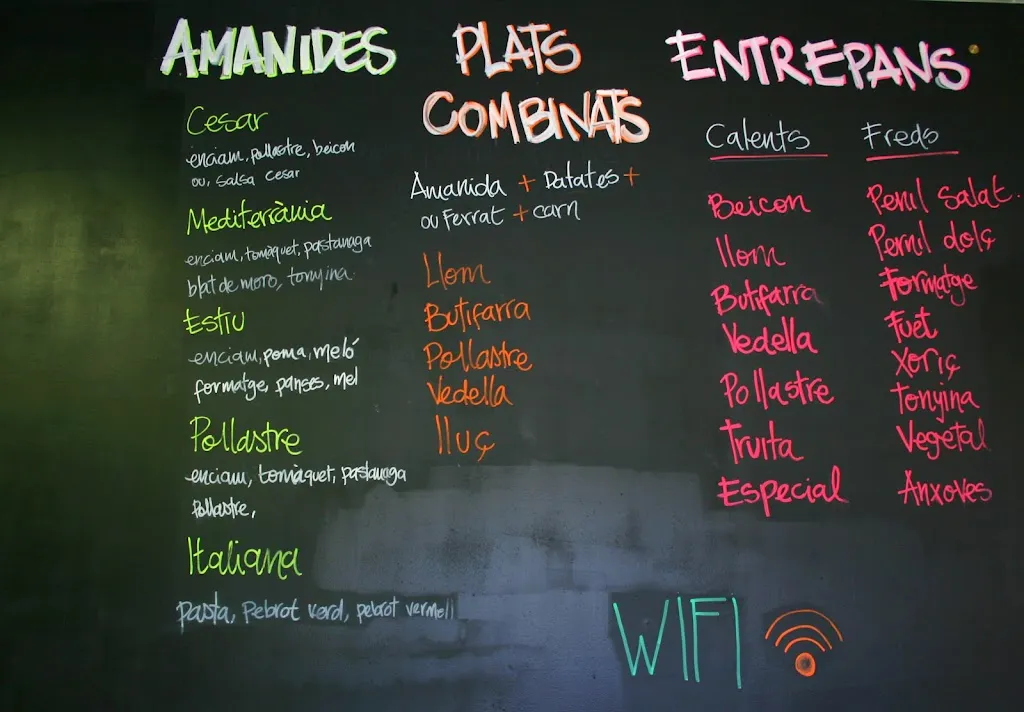 AMANIDES
Cesar
enciam, pollastre, beicon
ou, salsa cesar
Mediterrània
enciam, tomàquet, pastanaga
blat de moro, tonyina.
Estiu
enciam, poma, meló
formatge, panses, mel
Pollastre
enciam, tomàquet, pastanaga
Pollastre,
Italiana
pasta, pebrot verd, pebrot vermell
PLATS
COMBINATS
Amanida + Patates +
ou Ferrat + carn
Llom
Butifarra
Pollastre
Vedella
lluç
ENTREPANS
Calents
Beicon
llom
Butifarra
Vedella
Pollastre
Truita
Especial
Freds
Pernil Salat.
Pernil dolç
Formatge
Fuet
Xoriç
Tonyina
Vegetal
Anxoves
WIFI